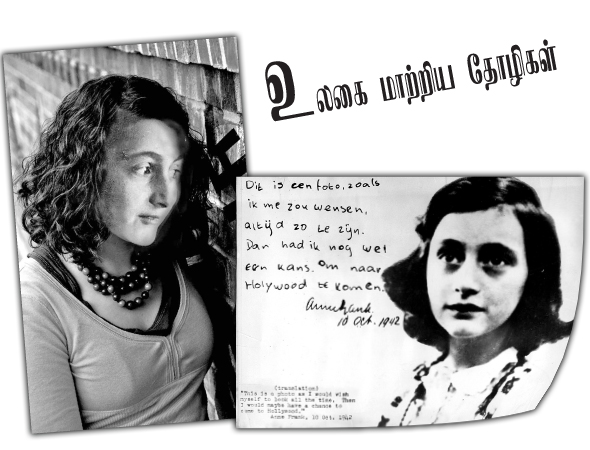 உலகை மாற்றிய தோழிகள்
Dit is een foto, zoals
ik me zou wensen,
altijd zo te zijn.
Dan had ik nog wel
een kans om naar
Holywood te komen.
Annefrank.
10 Oct. 1942
(translation)
"This is a photo as I would wish
myself to look all the time. Then
I would maybe have a chance to
come to Hollywood."
Anne Frank, 10 Oct. 1942